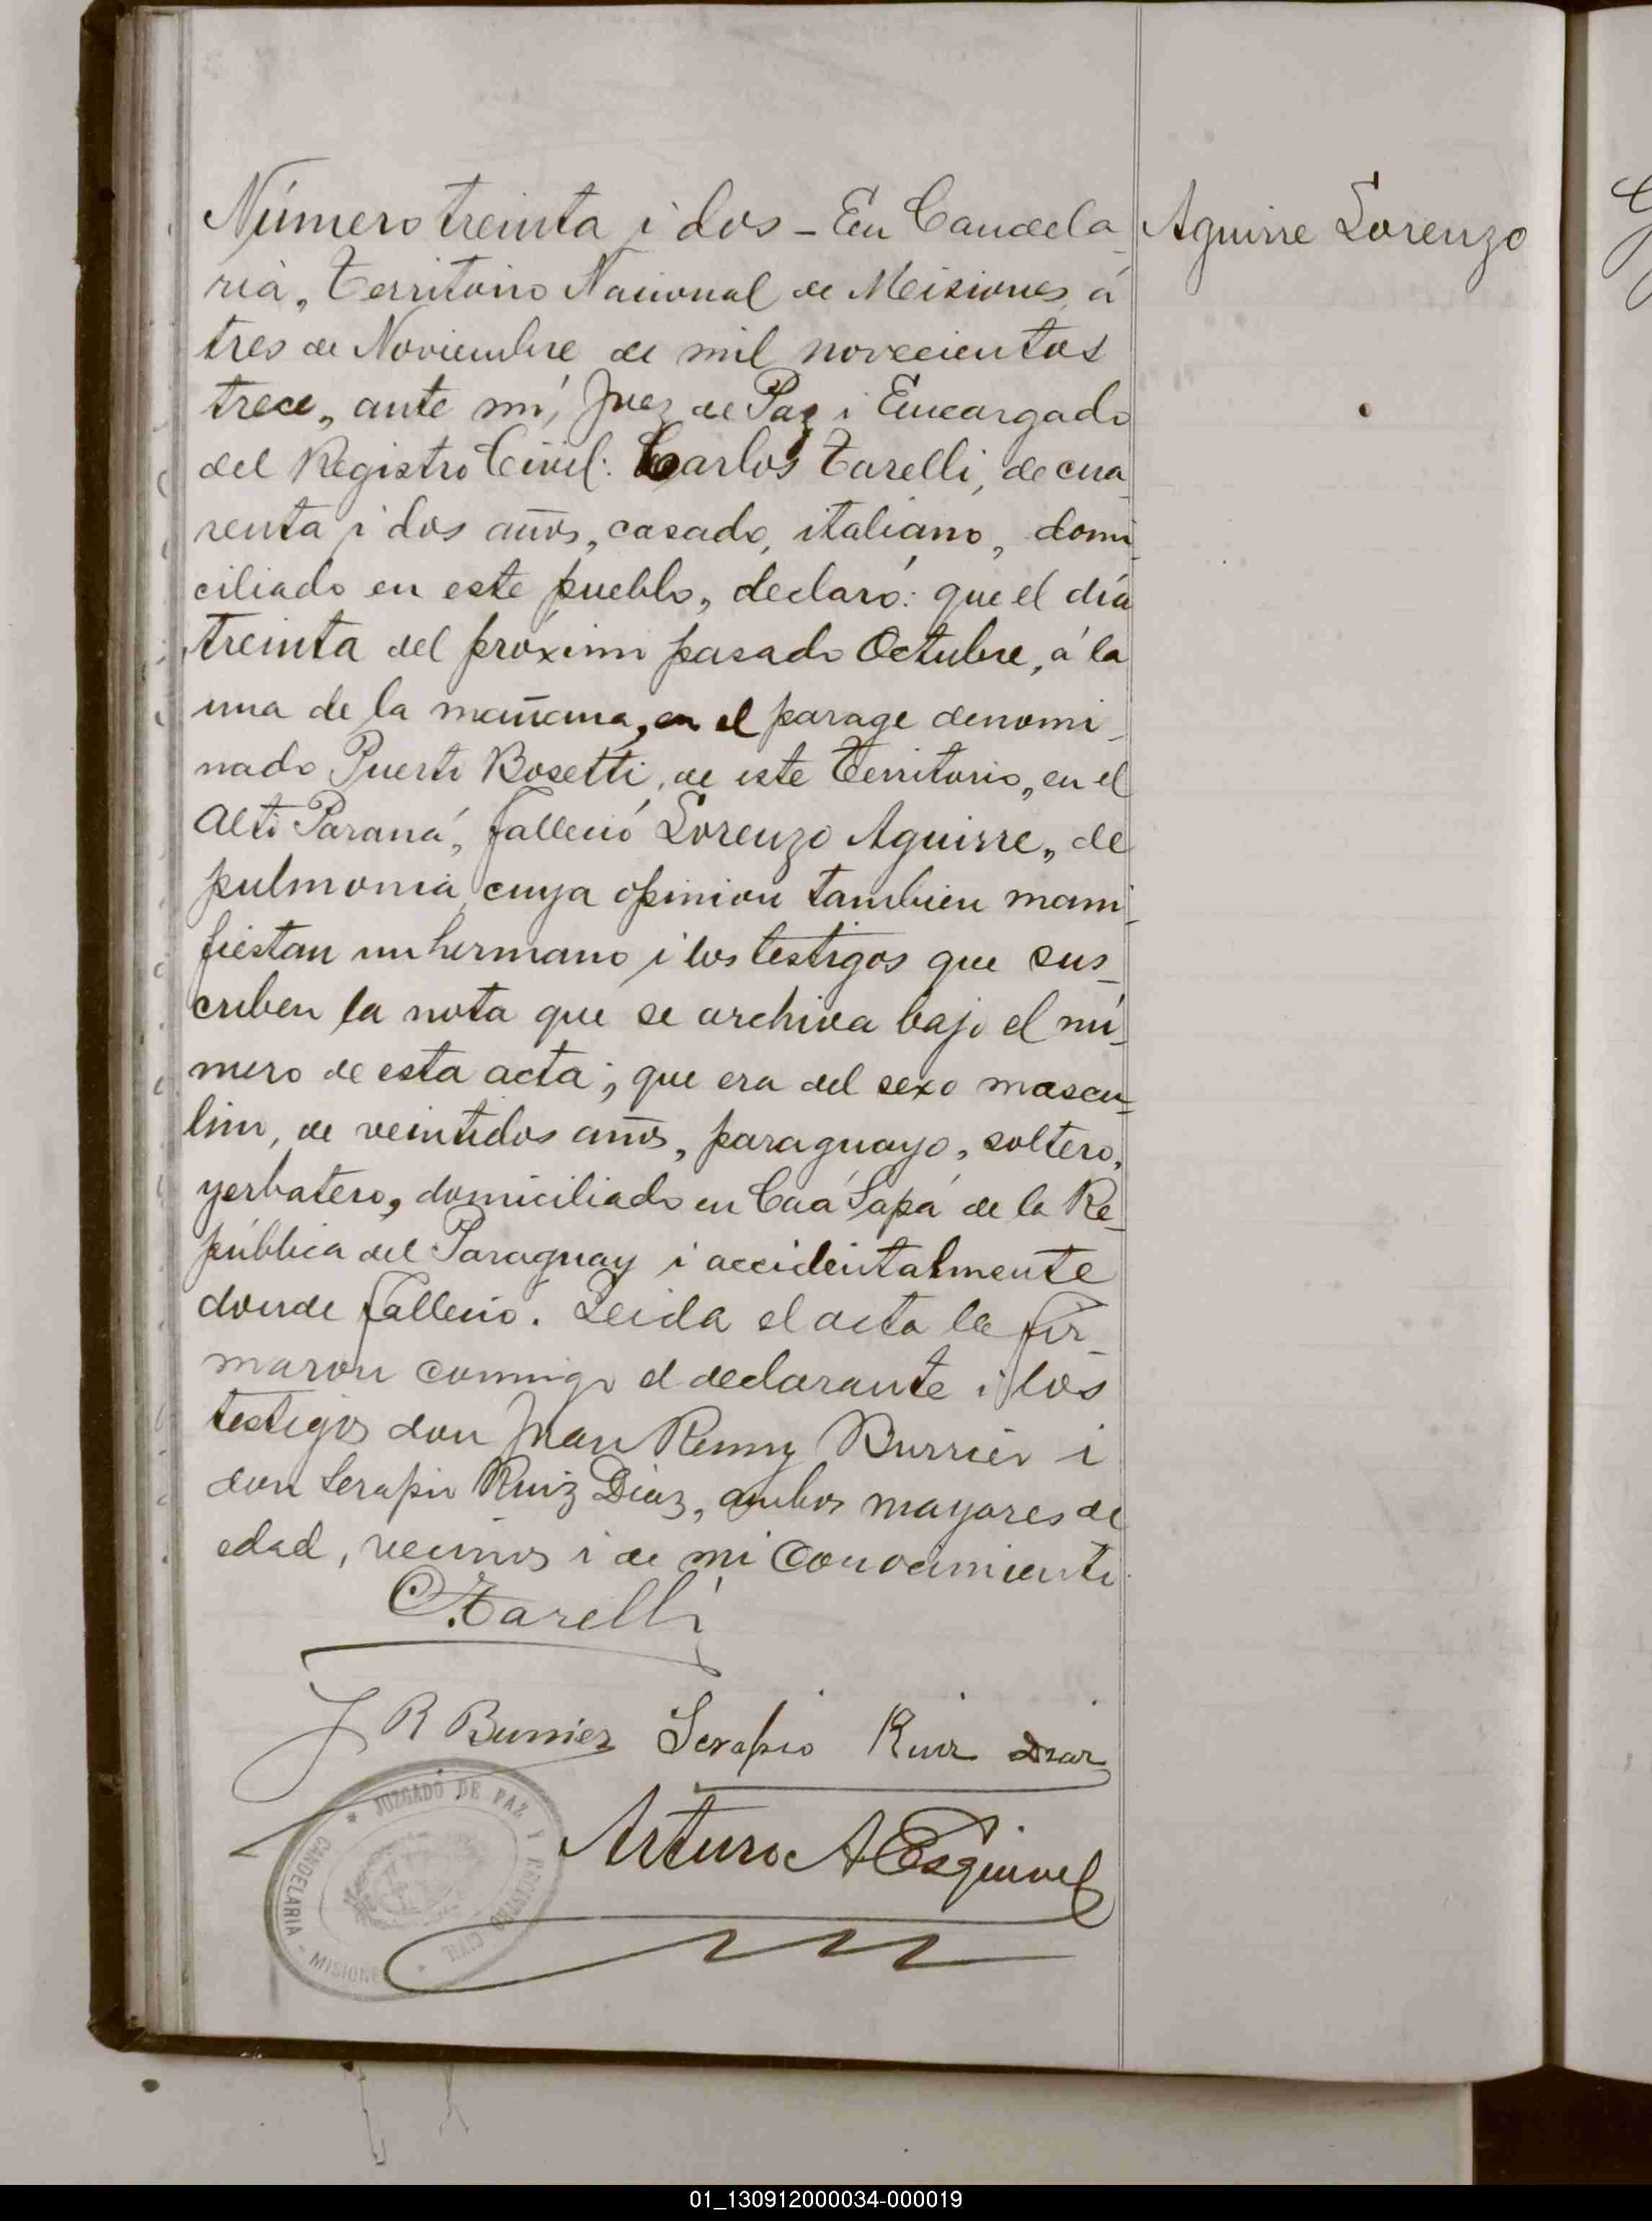 Número treinta i dos - En Candela-
ria, Territorio Nacional de Misiones, á
tres de Noviembre de mil novecientos
trece, ante mí, Juez de Paz i Encargado
del Registro Civil: Carlos Tarelli, de cua-
renta i dos años, casado, italiano, domi-
ciliado en este pueblo, declaró: que el día
treinta del próximo pasado Octubre, á la
una de la mañana, en el parage denomi-
nado Puerto Bosetti, de este Territorio, en el
Alto Paraná, falleció Lorenzo Aguirre, de
pulmonia, cuya opinion tambien mani-
fiestan un hermano i los testigos que sus-
criben la nota que se archiva bajo el nú-
mero de esta acta; que era del sexo mascu-
lino, de veintidos años, paraguayo, soltero,
yerbatero, domiciliado en Caá Sapá de la Re-
pública del Paraguay i accidentalmente
donde falleció. Leida el acta la fir-
maron conmigo el declarante i los
testigos don Juan Remy Burrier i
don Serapio Ruiz Diaz, ambos mayores de
edad, vecinos i de mi conocimiento
Aguirre Lorenzo
C. Tarelli
J R Burrier Serapio Ruiz Diaz
Arturo A Esquivel
JUZGADO DE PAZ Y REGISTRO CIVIL
CANDELARIA - MISIONES
01_130912000034-000019